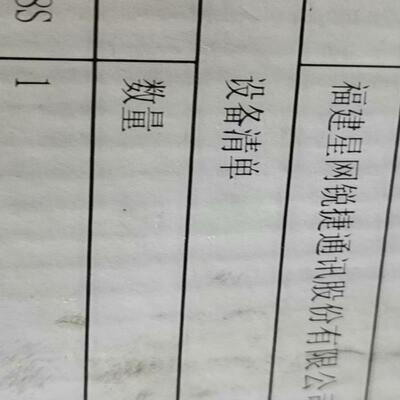 福建星网锐捷通讯股份有限公司
设备清单
数量
8S 1